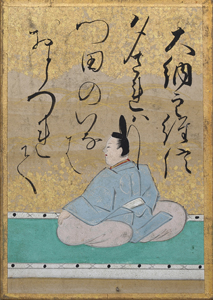 大納言經信
夕されは
門田のいなは
おとつれて